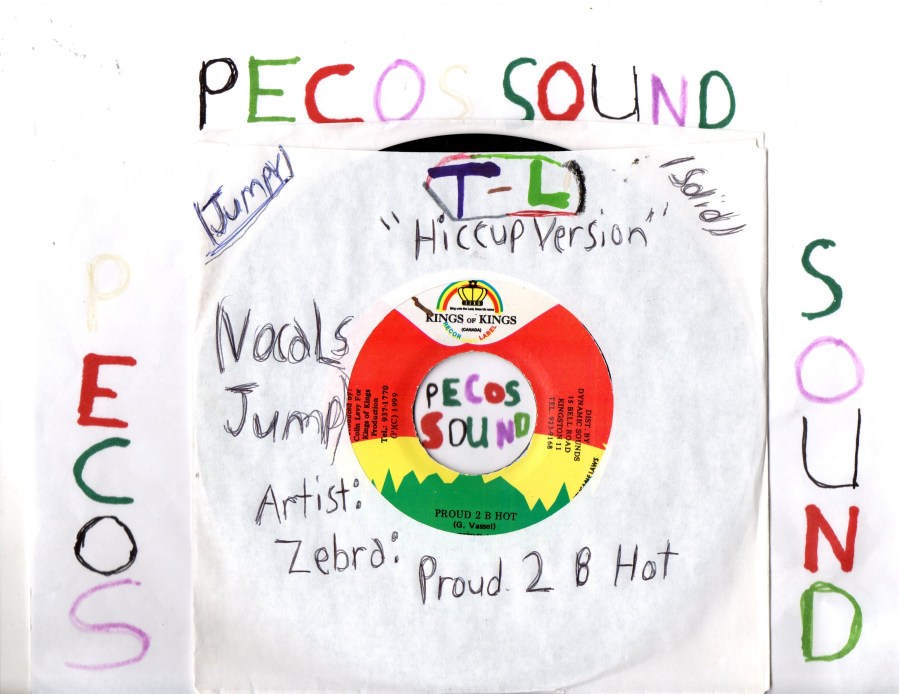 PECOS SOUND
PECOS
SOUND
Jumpy
T-L
Solid
"Hiccup Version"
Vocals
Jump
Artist:
Zebra: Proud 2 B Hot
KINGS OF KINGS
(CANADA)
RECORD LABEL
Colin Levy For
Kings of Kings
Production
Tel.: 937-1770
(P)(C) 1999
PECOS
SOUND
DIST. BY
DYNAMIC SOUNDS
15 BELL ROAD
KINGSTON 11
TEL. 923-9168
PROUD 2 B HOT
(G. Vassel)